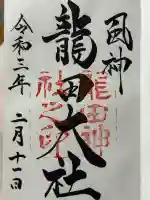 風神
龍田大社
龍田神
社之印
令和三年 二月十一日